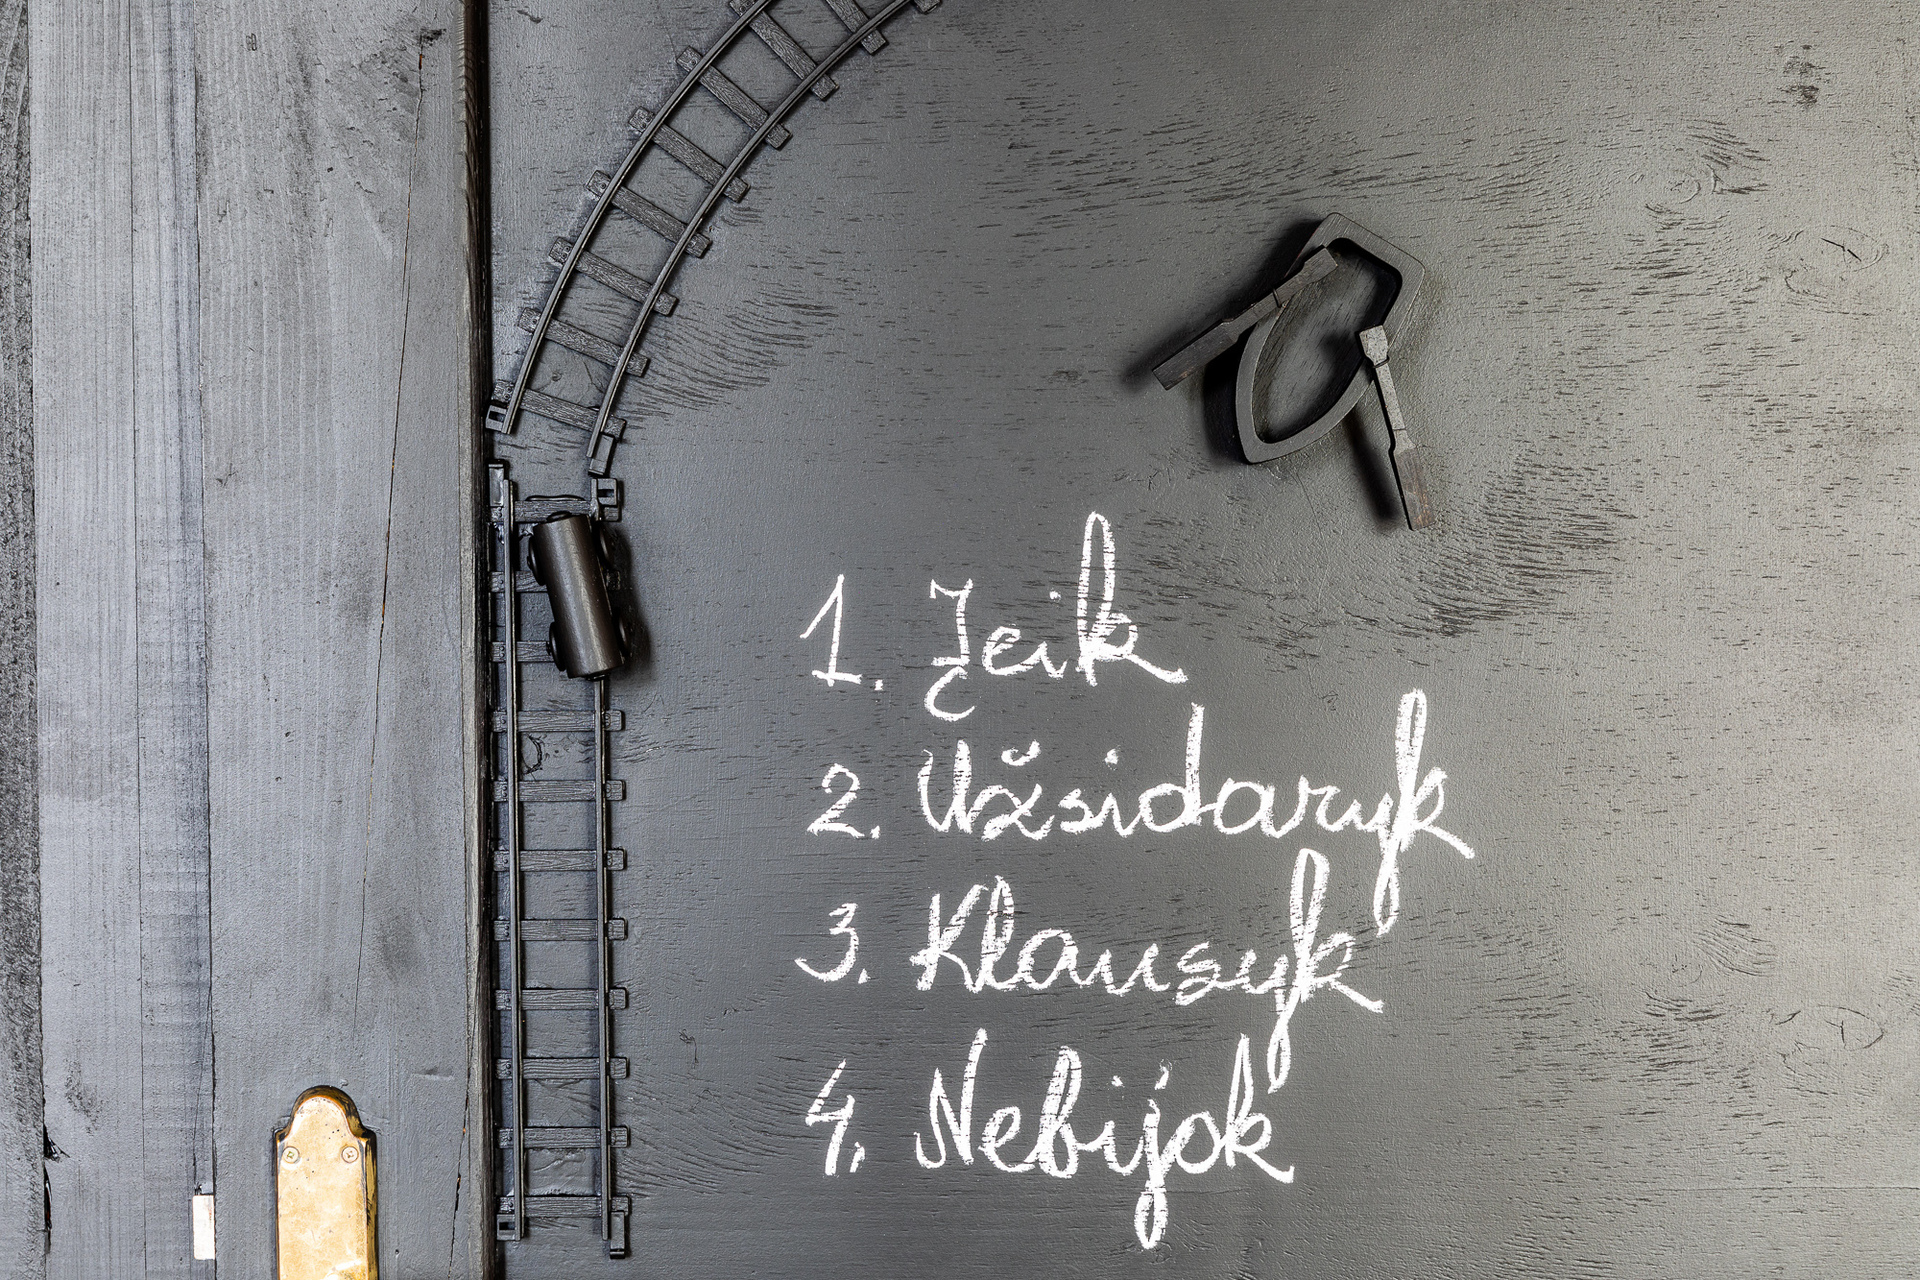 1. Įeik
2. Užsidaryk
3. Klausyk
4. Nebijok